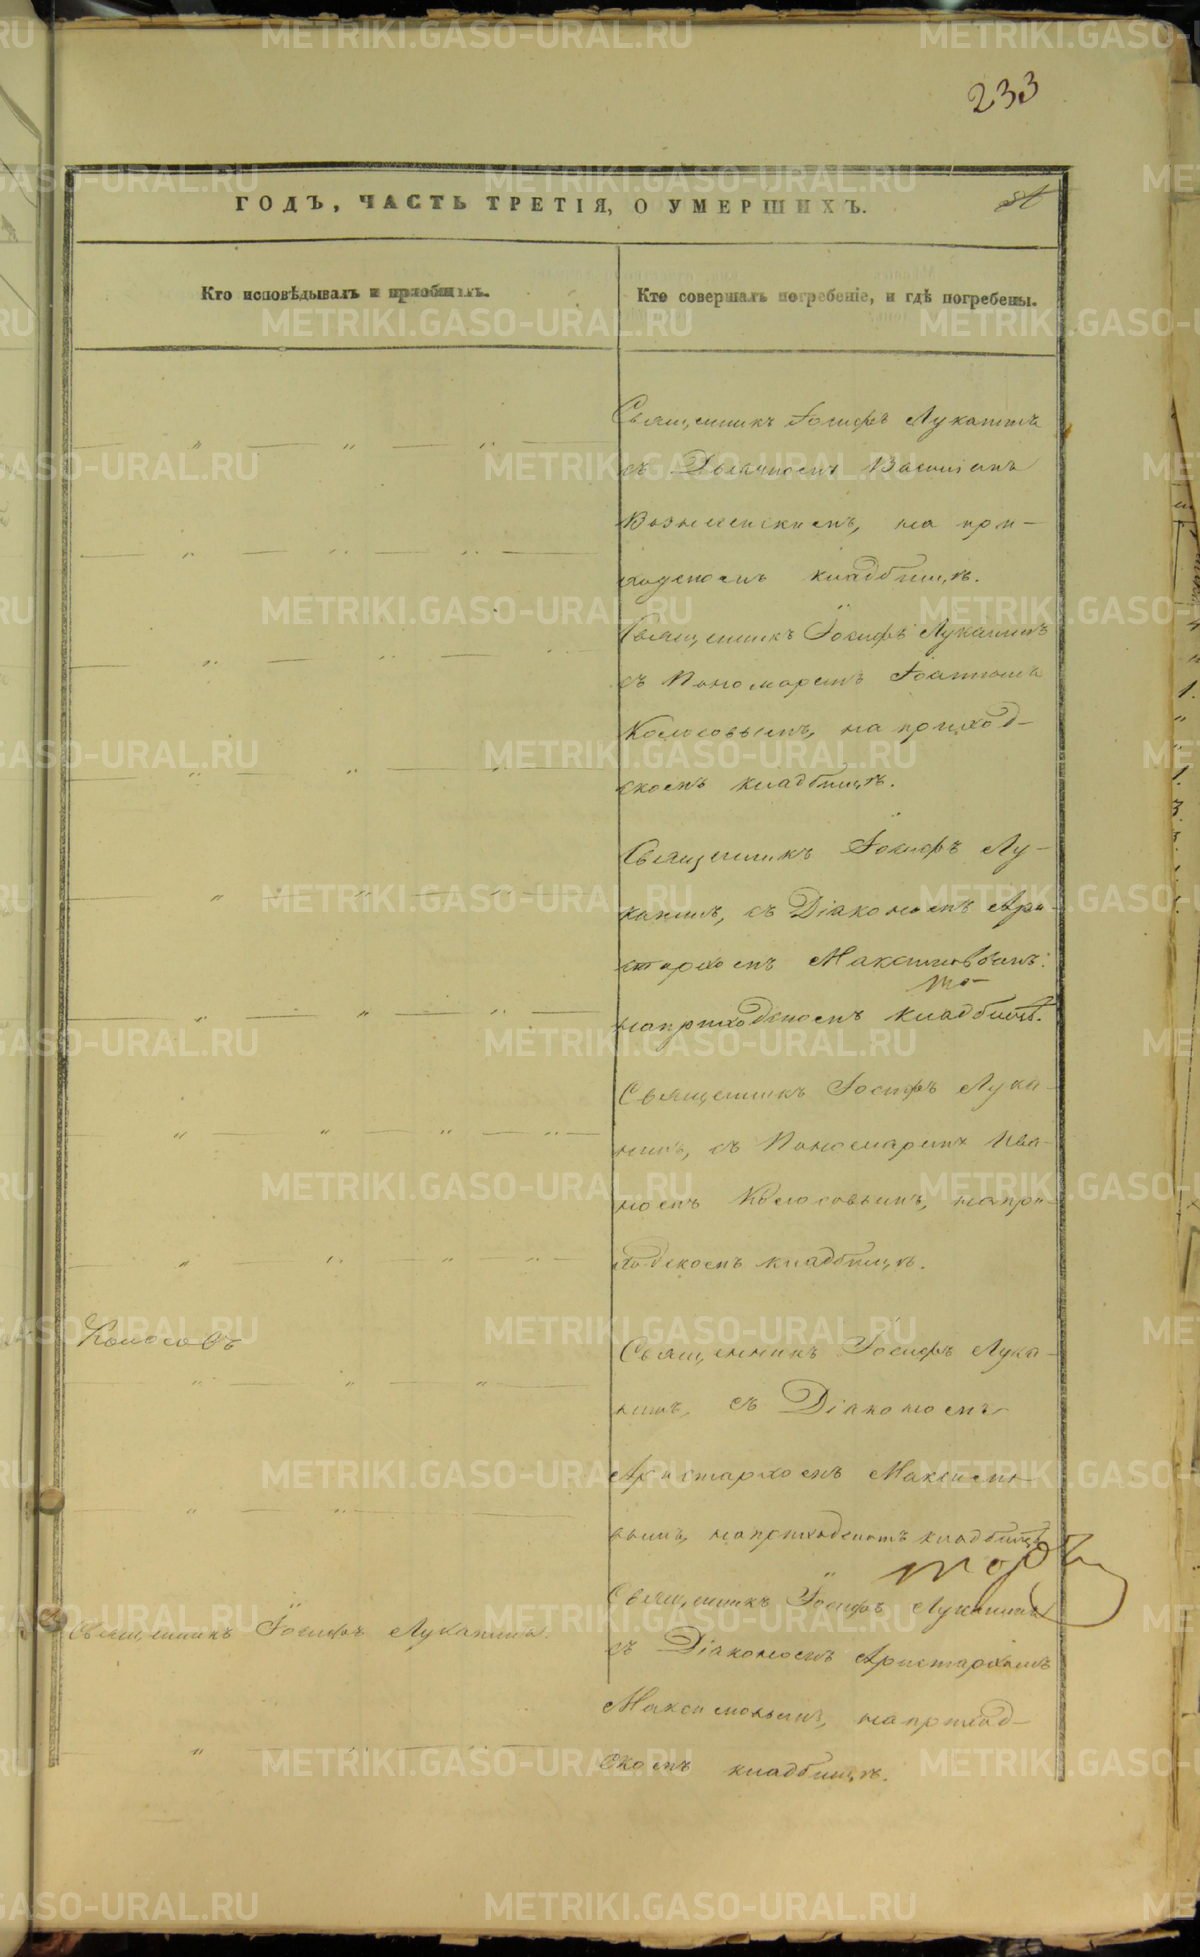 233
ГОДЪ, ЧАСТЬ ТРЕТІЯ, О УМЕРШИХЪ.
Кто исповѣдывалъ и пріобщалъ.
Кто совершалъ погребеніе, и гдѣ погребены.
Священникъ Іосифъ Луканинъ
съ Дьячкомъ Василіемъ
Вознесенскимъ, на при-
ходскомъ кладбищѣ.
Священникъ Іосифъ Луканинъ
съ Пономаремъ Іоанномъ
Колосовымъ, на приход-
скомъ кладбищѣ.
Священникъ Іосифъ Лу-
канинъ, съ Діакономъ Ари-
стархомъ Максимовымъ
на приходскомъ кладбищѣ.
Священникъ Іосифъ Лука-
нинъ, съ Пономаремъ Ива-
номъ Колосовымъ, на при-
ходскомъ кладбищѣ.
Колосовъ
Священникъ Іосифъ Лука-
нинъ, съ Діакономъ
Аристархомъ Максимо-
вымъ, на приходскомъ кладбищѣ
Священникъ Іосифъ Луканинъ.
Священникъ Іосифъ Луканинъ
съ Діакономъ Аристархомъ
Максимовымъ, на приход-
скомъ кладбищѣ.
METRIKI.GASO-URAL.RU